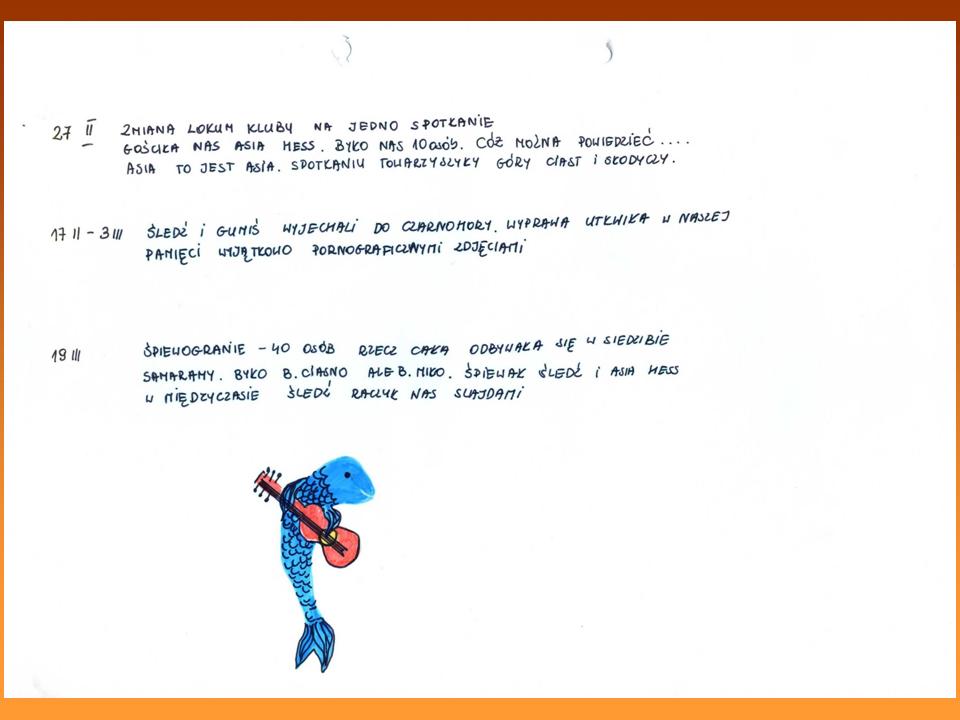 27 II ZMIANA LOKUM KLUBU NA JEDNO SPOTKANIE
GOŚCIŁA NAS ASIA MESS. BYŁO NAS 10 osób. CÓŻ MOŻNA POWIEDZIEĆ....
ASIA TO JEST ASIA. SPOTKANIU TOWARZYSZYŁY GÓRY CIAST i SŁODYCZY.
17 II - 3 III ŚLEDŹ i GUMIŚ WYJECHALI DO CZARNOHORY. WYPRAWA UTKWIŁA W NASZEJ
PAMIĘCI WYJĄTKOWO PORNOGRAFICZNYMI ZDJĘCIAMI
19 III ŚPIEWOGRANIE - 40 OSÓB RZECZ CAŁA ODBYWAŁA SIĘ W SIEDZIBIE
SAMARAMY. BYŁO B. CIASNO ALE B. MIŁO. ŚPIEWAŁ ŚLEDŹ i ASIA MESS
W MIĘDZYCZASIE ŚLEDŹ RACZYŁ NAS SLAJDAMI